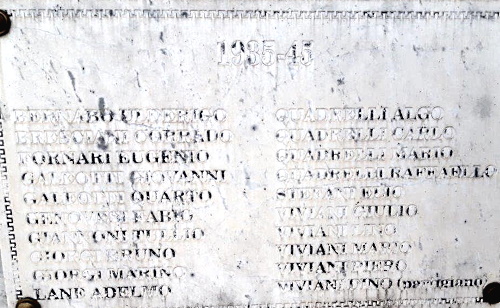 1935-45
BERNABO ULDERIGO
BRESCIANI CORRADO
FORNARI EUGENIO
GALEOTTI GIOVANNI
GALEOTTI QUARTO
GENOVESI FABIO
GIANNONI TULLIO
GIORGI BRUNO
GIORGI MARINO
LANE ADELMO
QUADRELLI ALGO
QUADRELLI CARLO
QUADRELLI MARIO
QUADRELLI RAFFAELLO
STEFANI ELIO
VIVIANI GIULIO
VIVIANI LINO
VIVIANI MARIO
VIVIANI PIERO
VIVIANI (partigiano)